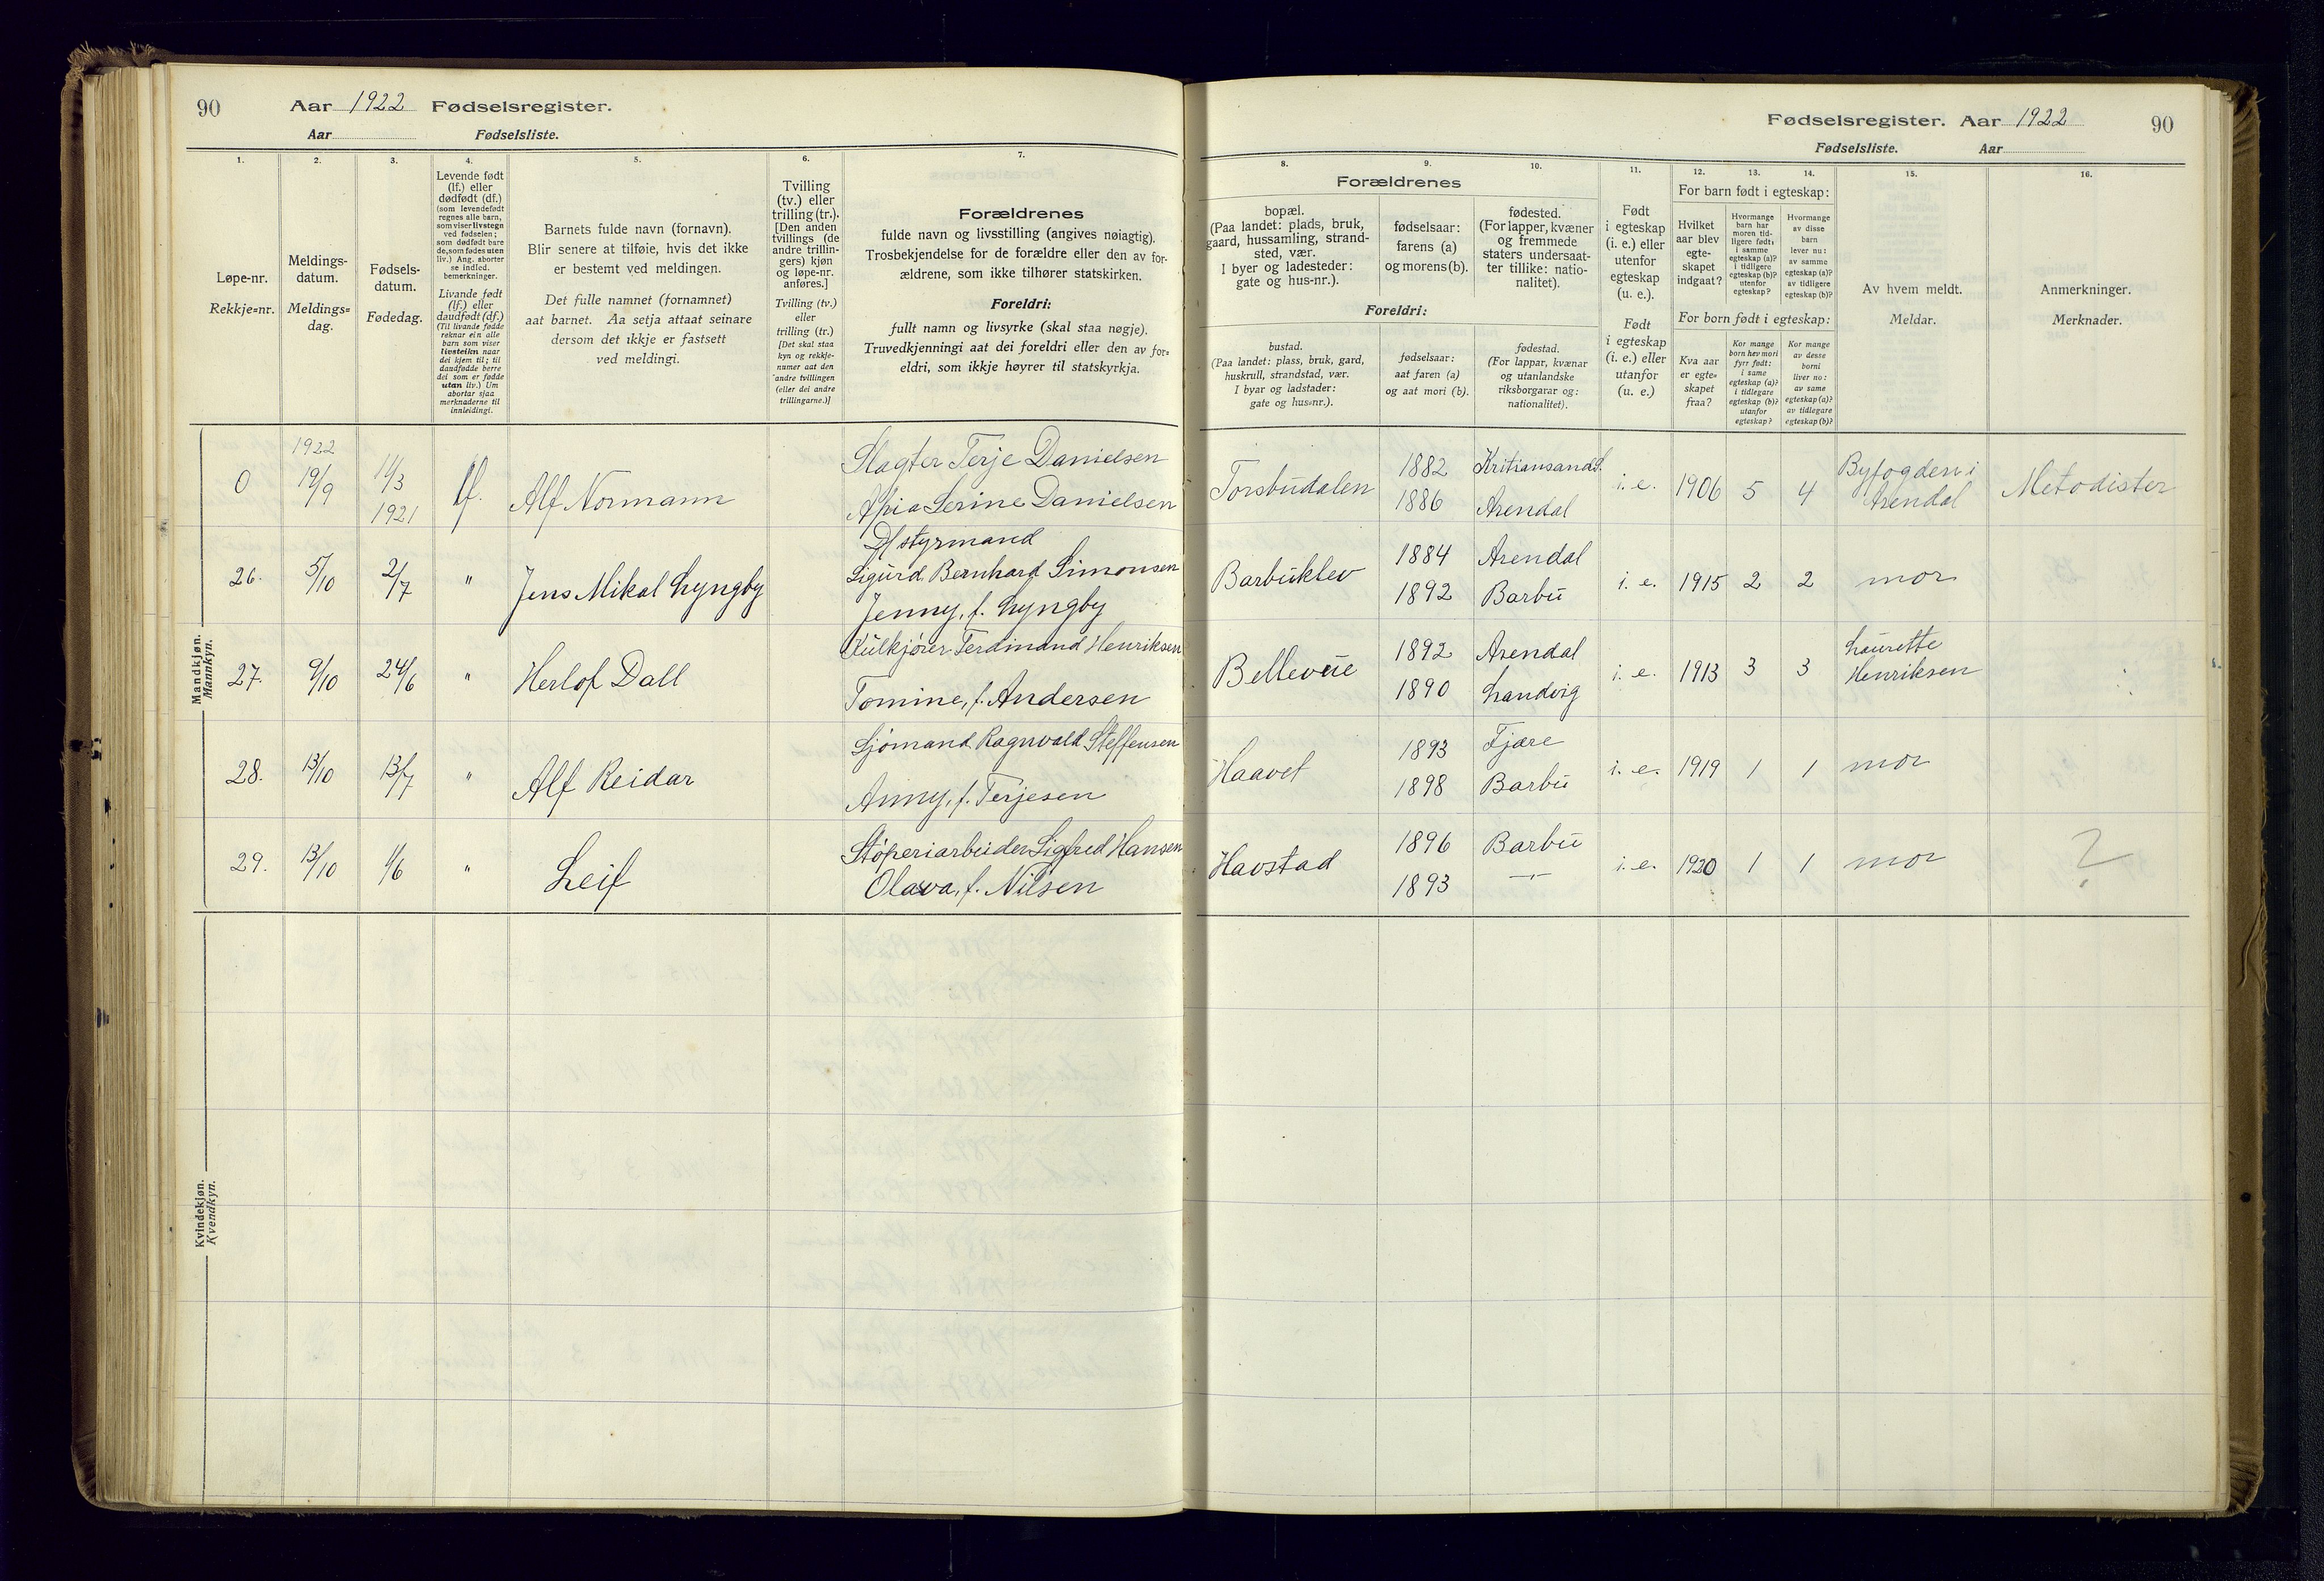 90
Aar 1922 Fødselsregister.
Aar Fødselsliste.
1.
2.
3.
4.
5.
6.
7.
Løpe-nr.
Rekkje=nr.
Meldings-
datum.
Meldings=
dag.
Fødsels-
datum.
Fødedag.
Levende født
(lf.) eller
dødfødt (df.)
(som levendefødt
regnes alle barn,
som viser livstegn
ved fødselen;
som dødfødt bare
de, som fødes uten
liv.) Ang. aborter
se indled.
bemerkninger.
Livande født
(lf.) eller
daudfødt (df.)
(Til livande fødde
reknar ein alle
barn som viser
livsteikn naar
dei kjem til; til
daudfødde berre
dei som er fødde
utan liv.) Um
abortar sjaa
merknaderne til
innleidingi.
Barnets fulde navn (fornavn).
Blir senere at tilføie, hvis det ikke
er bestemt ved meldingen.
Det fulle namnet (fornamnet)
aat barnet. Aa setja attaat seinare
dersom det ikkje er fastsett
ved meldingi.
Tvilling
(tv.) eller
trilling (tr.).
[Den anden
tvillings (de
andre trillin-
gers) kjøn
og løpe-nr.
anføres.]
Tvilling (tv.)
eller
trilling (tr.)
[Det skal staa
kyn og rekkje-
numer aat den
andre tvillingen
(eller dei andre
trillingarne.)]
Forældrenes
fulde navn og livsstilling (angives nøiagtig).
Trosbekjendelse for de forældre eller den av for-
ældrene, som ikke tilhører statskirken.
Foreldri:
fullt namn og livsyrke (skal staa nøgje).
Truvedkjenningi aat dei foreldri eller den av for=
eldri, som ikkje høyrer til statskyrkja.
Mandkjøn.
Mannkyn.
0
1922
19/9
11/3
1921
lf.
Alf Normann
Slagter Terje Danielsen
Serine Danielsen
26.
5/10
2/7
"
Jens Mikal Lyngby
styrmand
Sigurd Bernhard Simonsen
Jenny, f. Lyngby
27.
9/10
24/6
"
Herlof Dall
Kulkjører Ferdinand Henriksen
Tomine, f. Andersen
28.
13/10
13/7
"
Alf Reidar
Sjømand Ragnvald Steffensen
Anny, f. Terjesen
29.
13/10
1/6
"
Leif
Støperiarbeider Sigfred Hansen
Olava, f. Nilsen
Kvindekjøn.
Kvendkyn.
Fødselsregister. Aar 1922
90
Fødselsliste. Aar
8.
9.
10.
11.
12.
13.
14.
15.
16.
Forældrenes
bopæl.
(Paa landet: plads, bruk,
gaard, hussamling, strand-
sted, vær.
I byer og ladesteder:
gate og hus-nr.).
fødselsaar:
farens (a)
og morens (b).
fødested.
(For lapper, kvæner
og fremmede
staters undersaat-
ter tillike: natio-
nalitet).
Foreldri:
bustad.
(Paa landet: plass, bruk, gard,
huskrull, strandstad, vær.
I byar og ladstader:
gate og hus=nr.).
fødselsaar:
aat faren (a)
og aat mori (b).
fødestad.
(For lappar, kvænar
og utanlandske
riksborgarar og:
nationalitet).
Født
i egteskap
(i. e.) eller
utenfor
egteskap
(u. e.).
Født
i egteskap
(i. e.) eller
utanfor
(u. e.).
For barn født i egteskap:
Hvilket
aar blev
egte-
skapet
indgaat?
Hvormange
barn har
moren tid-
ligere født:
i samme
egteskap (a)?
i tidligere
egteskap (b)?
utenfor
egteskap?
Hvormange
av disse
barn
lever nu:
av samme
egteskap (a)?
av tidligere
egteskap (b)?
For born født i egteskap:
Kva aar
er egte=
skapet
fraa?
Kor mange
born hev mori
fyrr født:
i same
egteskap (a)?
i tidlegare
egteskap (b)?
utanfor
egteskap?
Kor mange
av desse
borni
liver no:
av same
egteskap (a)?
av tidlegare
egteskap (b)?
Av hvem meldt.
Meldar.
Anmerkninger.
Merknader.
Torsbudalen
1882
1886
Kritiansand S.
Arendal
i. e.
1906
5
4
Byfogden i
Arendal
Metodister
Barbuklev
1884
1892
Arendal
Barbu
i. e.
1915
2
2
mor
Bellevue
1892
1890
Arendal
Landvig
i. e.
1913
3
3
Laurette
Henriksen
Haavet
1893
1898
Fjære
Barbu
i. e.
1919
1
1
mor
Havstad
1896
1893
Barbu
—"—
i. e.
1920
1
1
mor
?